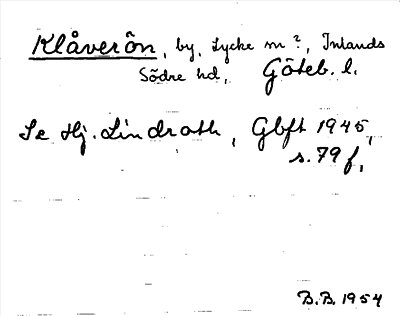 Klåverön, by, Lycke sn?, Inlands
Södre hd, Göteb. l.
Se Hj. Lindroth, Gbft 1945,
s. 79 f,
B.B. 1954